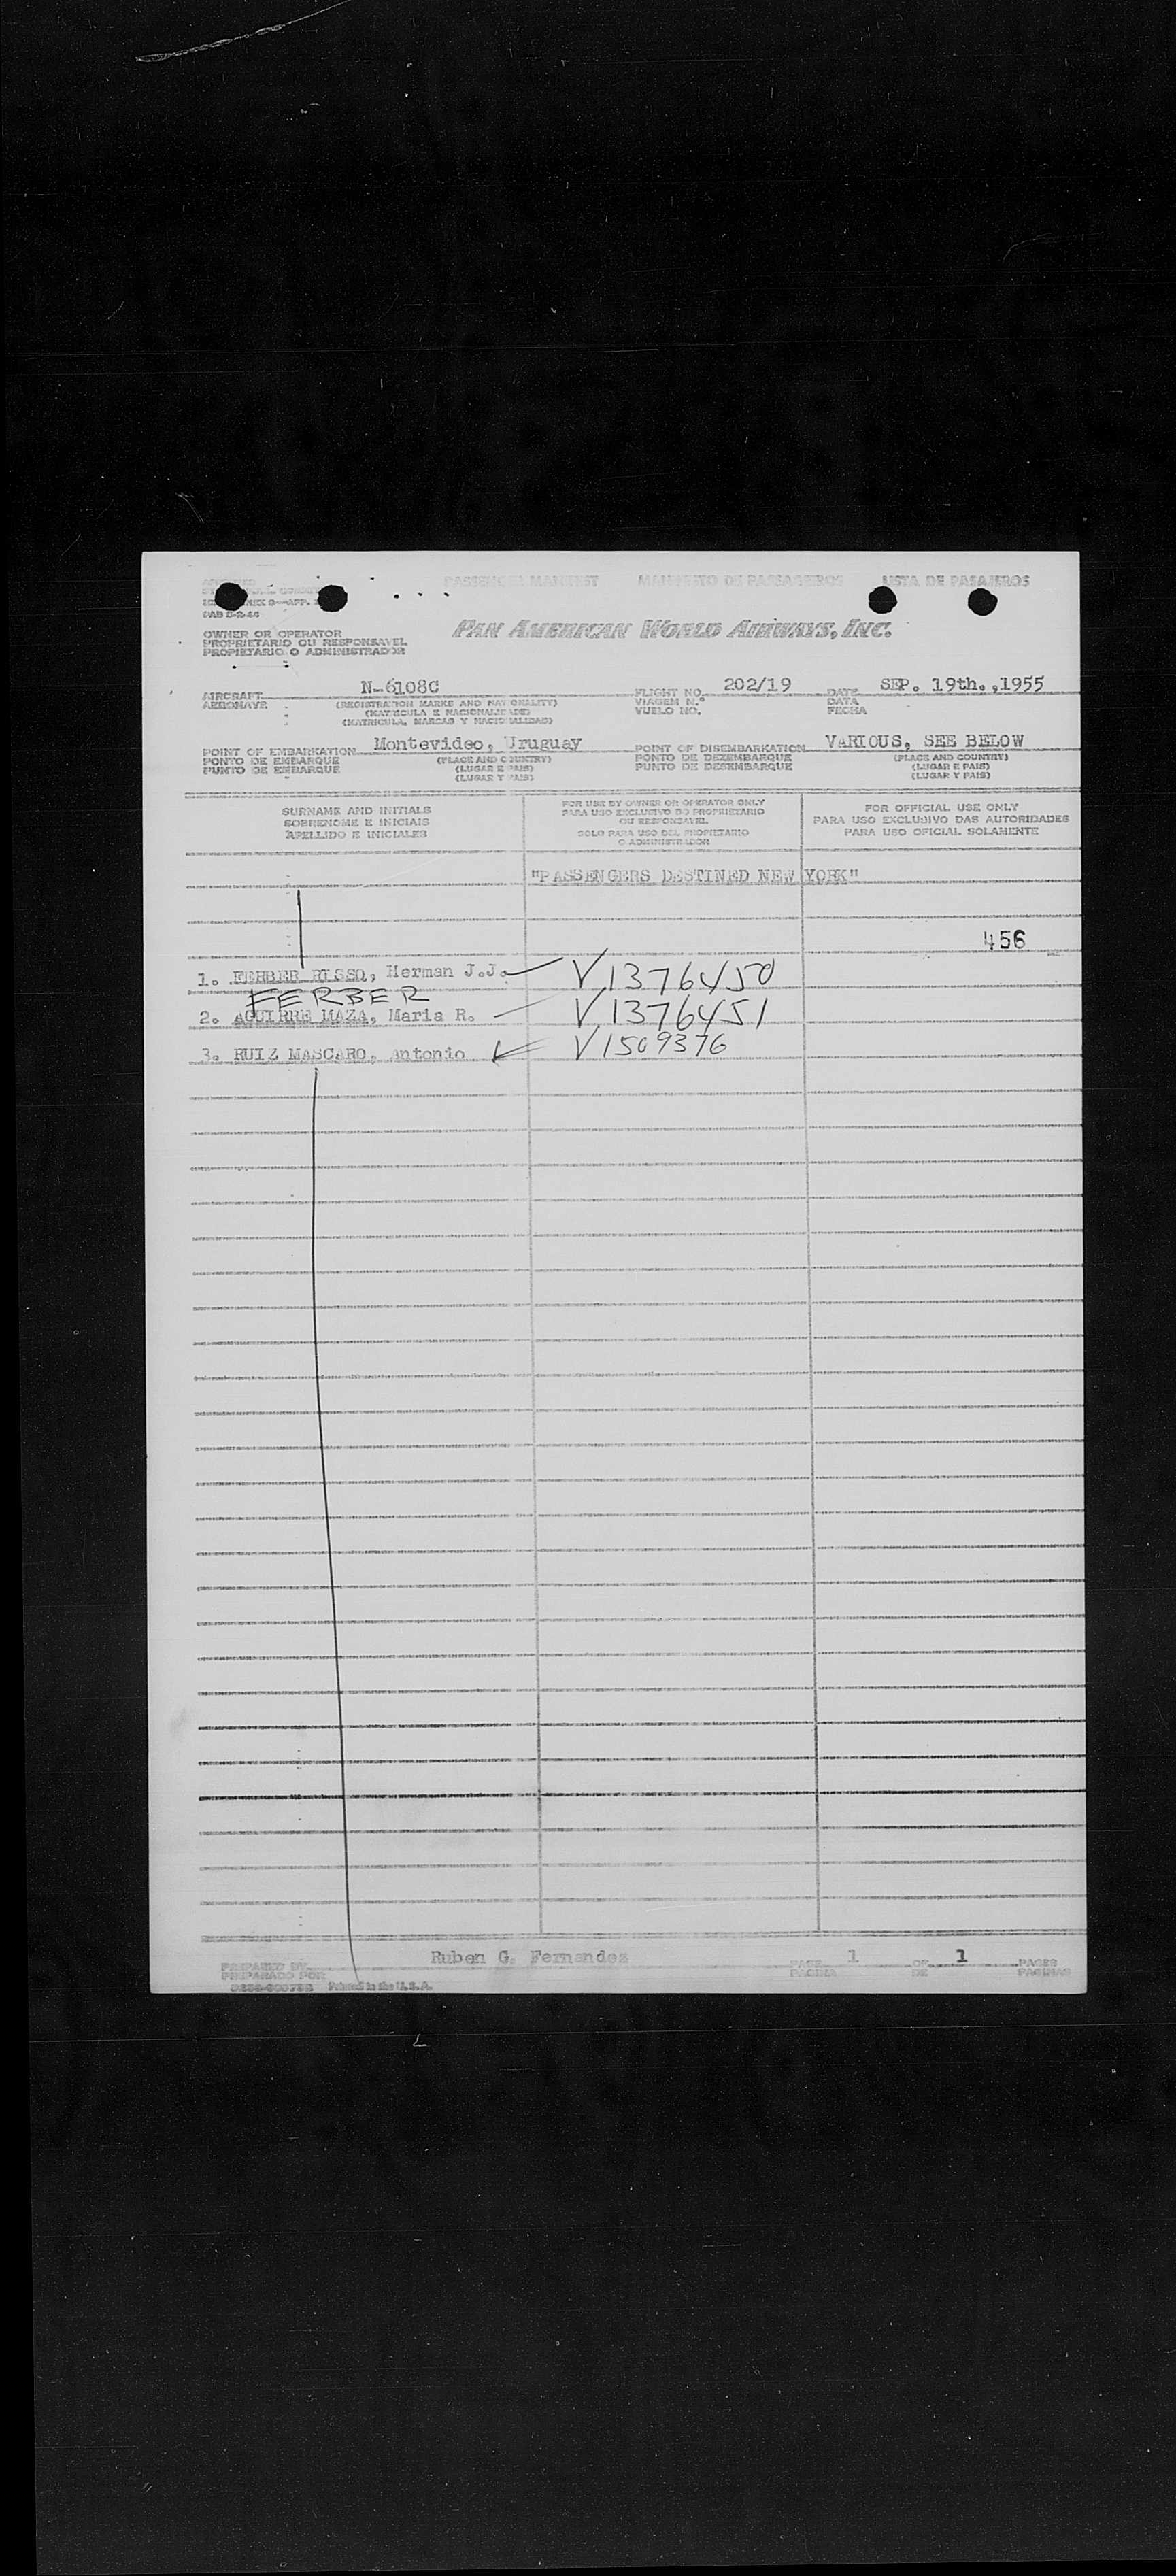 PASSENGER MANIFEST MANIFESTO DE PASSAGEIROS LISTA DE PASAJEROS
OWNER OR OPERATOR
PROPRIETARIO OU RESPONSAVEL
PROPIETARIO O ADMINISTRADOR
PAN AMERICAN WORLD AIRWAYS, INC.
AIRCRAFT N-6108C FLIGHT NO. 202/19 DATE SEP. 19th.,1955
AERONAVE (REGISTRATION MARKS AND NATIONALITY) VIAGEM N.° DATA
(MATRICULA E NACIONALIDADE) VUELO NO. FECHA
(MATRICULA, MARCAS Y NACIONALIDAD)
POINT OF EMBARKATION Montevideo, Uruguay POINT OF DISEMBARKATION VARIOUS, SEE BELOW
PONTO DE EMBARQUE (PLACE AND COUNTRY) PONTO DE DEZEMBARQUE (PLACE AND COUNTRY)
PUNTO DE EMBARQUE (LUGAR E PAIS) PUNTO DE DESEMBARQUE (LUGAR E PAIS)
(LUGAR Y PAIS) (LUGAR Y PAIS)
SURNAME AND INITIALS
SOBRENOME E INICIAIS
APELLIDO E INICIALES
FOR USE BY OWNER OR OPERATOR ONLY
PARA USO EXCLUSIVO DO PROPRIETARIO
OU RESPONSAVEL
SOLO PARA USO DEL PROPIETARIO
O ADMINISTRADOR
FOR OFFICIAL USE ONLY
PARA USO EXCLUSIVO DAS AUTORIDADES
PARA USO OFICIAL SOLAMENTE
"PASSENGERS DESTINED NEW YORK"
456
1. FERBER RISSO, Herman J.J. V1376450
FERBER
2. AGUIRRE MAZA, Maria R. V1376451
3. RUIZ MASCARO, Antonio V1509376
PREPARED BY Ruben G. Fernandez PAGE 1 OF 1 PAGES
PREPARADO POR PAGINA DE PAGINAS
Printed in the U.S.A.